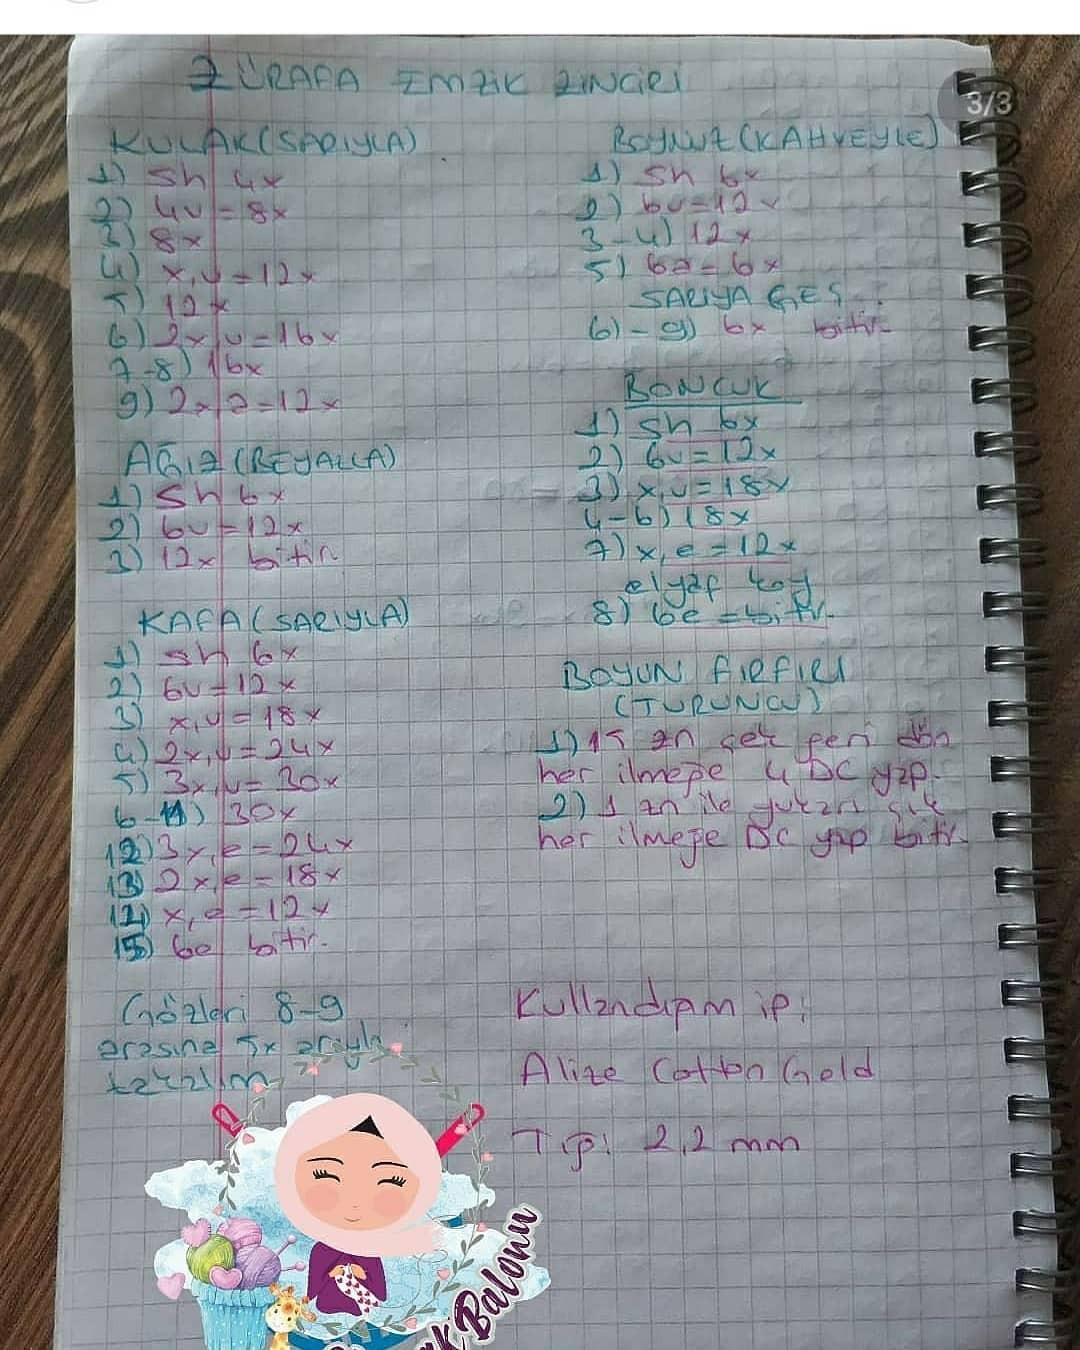 3/3
ZÜRAFA EMZİK ZİNCİRİ
KULAK (SARIYLA)
1) Sh 4x
2) 4v = 8x
3) 8x
4) x,v = 12x
5) 12x
6) 2x,v = 16x
7-8) 16x
9) 2x,a = 12x
AĞIZ (BEYAZLA)
1) Sh 6x
2) 6v = 12x
3) 12x bitir
KAFA (SARIYLA)
1) sh 6x
2) 6v = 12x
3) x,v = 18x
4) 2x,v = 24x
5) 3x,v = 30x
6-11) 30x
12) 3x,e = 24x
13) 2x,e = 18x
14) x,e = 12x
15) 6e bitir.
Gözleri 8-9
arasına 5x
BOYNUZ (KAHVEYLE)
1) Sh 6x
2) 6v = 12x
3-4) 12x
5) 6a = 6x
SARIYA GEÇ
6) - 9) 6x bitir
BONCUK
1) Sh 6x
2) 6v = 12x
3) x,v = 18x
4-6) 18x
7) x,e = 12x
elyaf koy
8) 6e = bitir.
BOYUN FIRFIRI
(TURUNCU)
1) 15 zn çek geri dön
her ilmeğe 4 DC yap.
2) 1 zn ile yukarı çık
her ilmeğe DC yap bitir.
Kullandığım ip:
Alize Cotton Gold
Tığ: 2,2 mm
Balonu